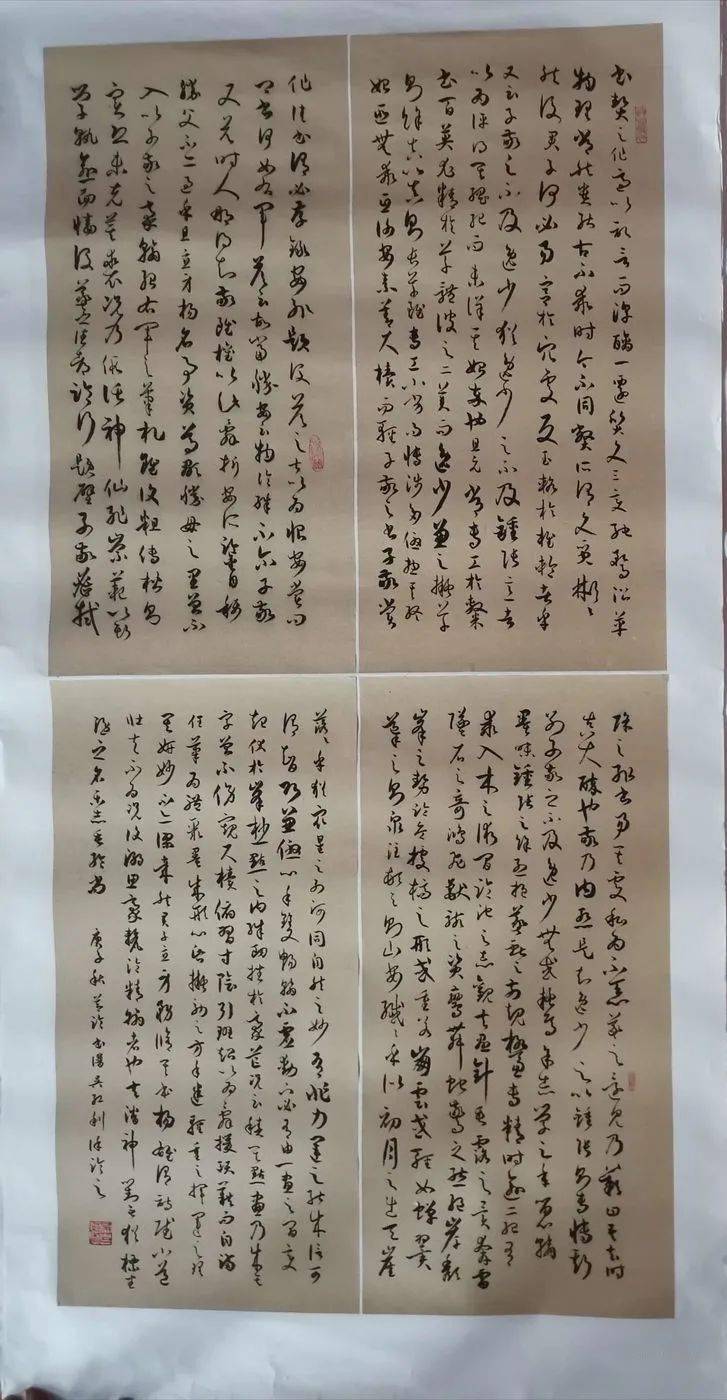 書契之作適以記言而淳醨一遷質文三變馳騖沿革
物理常然貴能古不乖時今不同弊所謂文質彬彬
然後君子何必易宮於穴處反玉輅於椎輪者乎
又云子敬之不及逸少猶逸少之不及鍾張意者
以為評得其綱紀而未詳其始卒也且元常專工於隸
書百英尤精於草體彼之二美而逸少兼之擬草
則餘真比真則長草雖專工小劣而博涉多優總其終
始匪無乖互謝安素善尺牘而輕子敬之書子敬嘗
作佳書與之謂必存錄安輒題後答之甚以為恨安嘗問
卿書何如右軍答云故當勝安云物論殊不爾子敬
又答時人那得知敬雖權以此辭折安所鑒自稱
勝父不亦過乎且立身揚名事資尊顯勝母之里曾參不
入以子敬之豪翰紹右軍之筆札雖復粗傳楷則
實恐未克箕裘況乃假託神仙恥崇家範以斯
學孰愈面牆後羲之往都臨行題壁子敬密拭
除之輒書易其處私為不惡羲之還見乃歎曰吾去時
真大醉也敬乃內慚是知逸少之比鍾張則專博斯
別子敬之不及逸少無或疑焉余志學之年留心翰
墨味鍾張之餘烈挹羲獻之前規極慮專精時逾二紀有
乖入木之術無間臨池之志觀夫懸針垂露之異奔雷
墜石之奇鴻飛獸駭之資鸞舞蛇驚之態絕岸頹
峰之勢臨危據槁之形或重若崩雲或輕如蟬翼
導之則泉注頓之則山安纖纖乎似初月之出天崖
落落乎猶眾星之列河同自然之妙有非力運之能成信可
謂智巧兼優心手雙暢翰不虛動下必有由一畫之間變
起伏於峰杪一點之內殊衄挫於豪芒況云積其點畫乃成其
字曾不傍窺尺牘俯習寸陰引班超以為辭援項籍而自滿
任筆為體聚墨成形心昏擬效之方手迷揮運之理
其妍妙不亦謬哉然君子立身務修其本揚雄謂詩賦小道
壯夫不為況復溺思豪氂淪精翰者也夫潛神對弈猶標坐
隱之名樂志垂綸尚
庚子秋節臨書譜